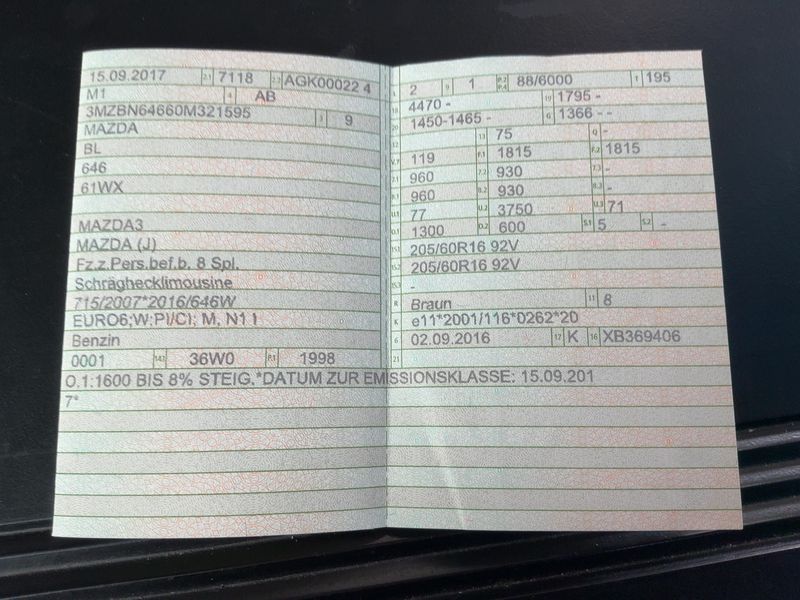 15.09.2017 2.1 7118 2.2 AGK00022 4
M1 4 AB
3MZBN64660M321595 3 9
MAZDA
BL
646
61WX
MAZDA3
MAZDA (J)
Fz.z.Pers.bef.b. 8 Spl.
Schräghecklimousine
715/2007*2016/646W
EURO6;W;PI/CI; M, N1 I
Benzin
0001 14.1 36W0 P.1 1998
O.1:1600 BIS 8% STEIG.*DATUM ZUR EMISSIONSKLASSE: 15.09.201
7*
L 2 9 1 P.2 P.4 88/6000 T 195
18 4470 - 19 1795 -
20 1450-1465 - G 1366 - -
12 - 13 75 Q -
V.7 119 F.1 1815 F.2 1815
7.1 960 7.2 930 7.3 -
8.1 960 8.2 930 8.3 -
U.1 77 U.2 3750 U.3 71
O.1 1300 O.2 600 S.1 5 S.2 -
15.1 205/60R16 92V
15.2 205/60R16 92V
15.3 -
R Braun 11 8
K e11*2001/116*0262*20
6 02.09.2016 17 K 16 XB369406
21